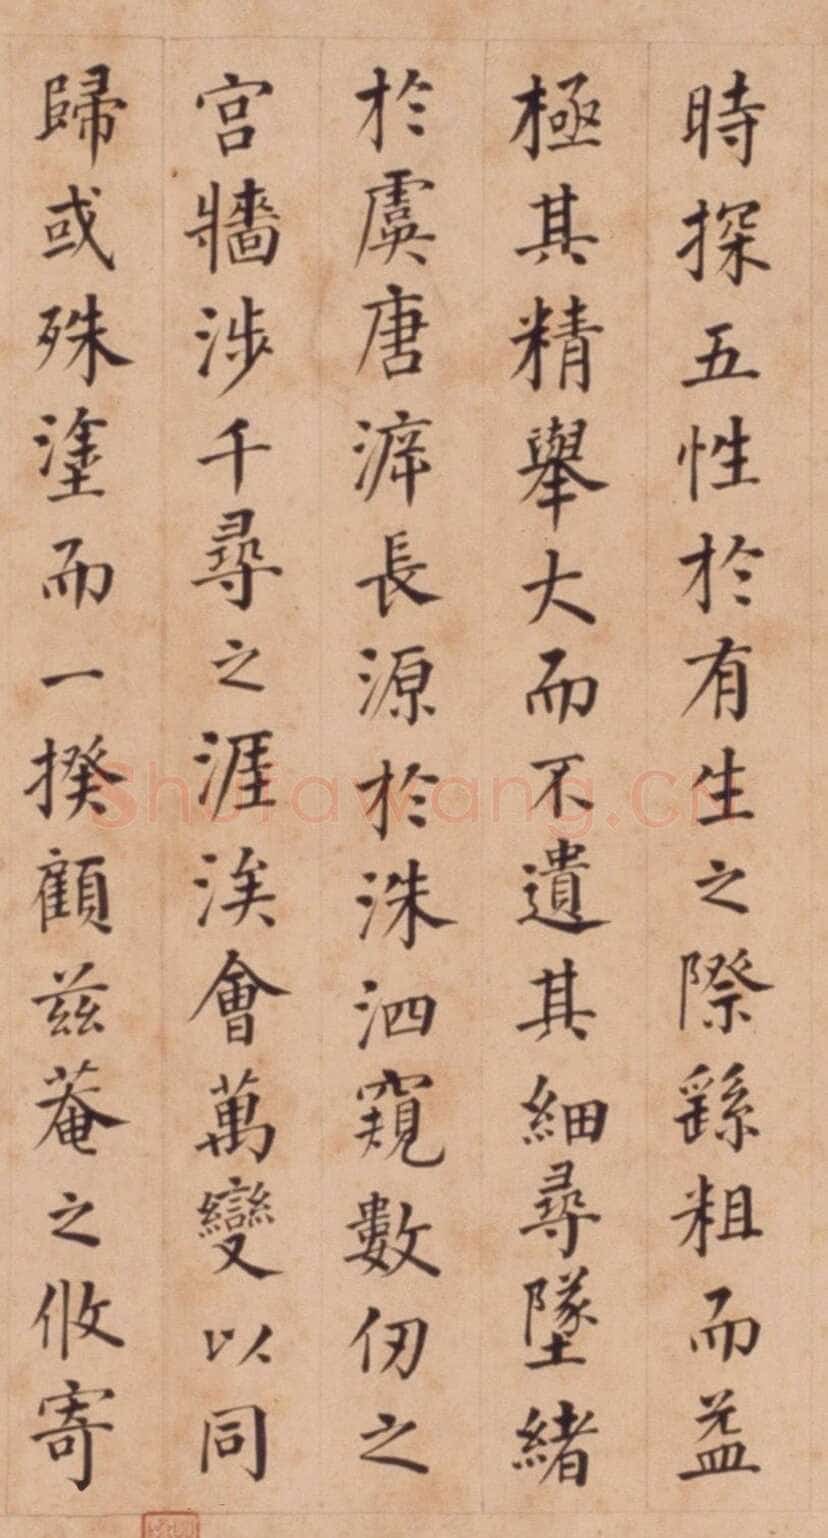 時探五性於有生之際繇粗而益
極其精舉大而不遺其細尋墜緒
於虞唐長源於洙泗窺數仞之
宮牆涉千尋之涯涘會萬變以同
歸或殊塗而一揆顧茲菴之攸寄
Shufawang.cn